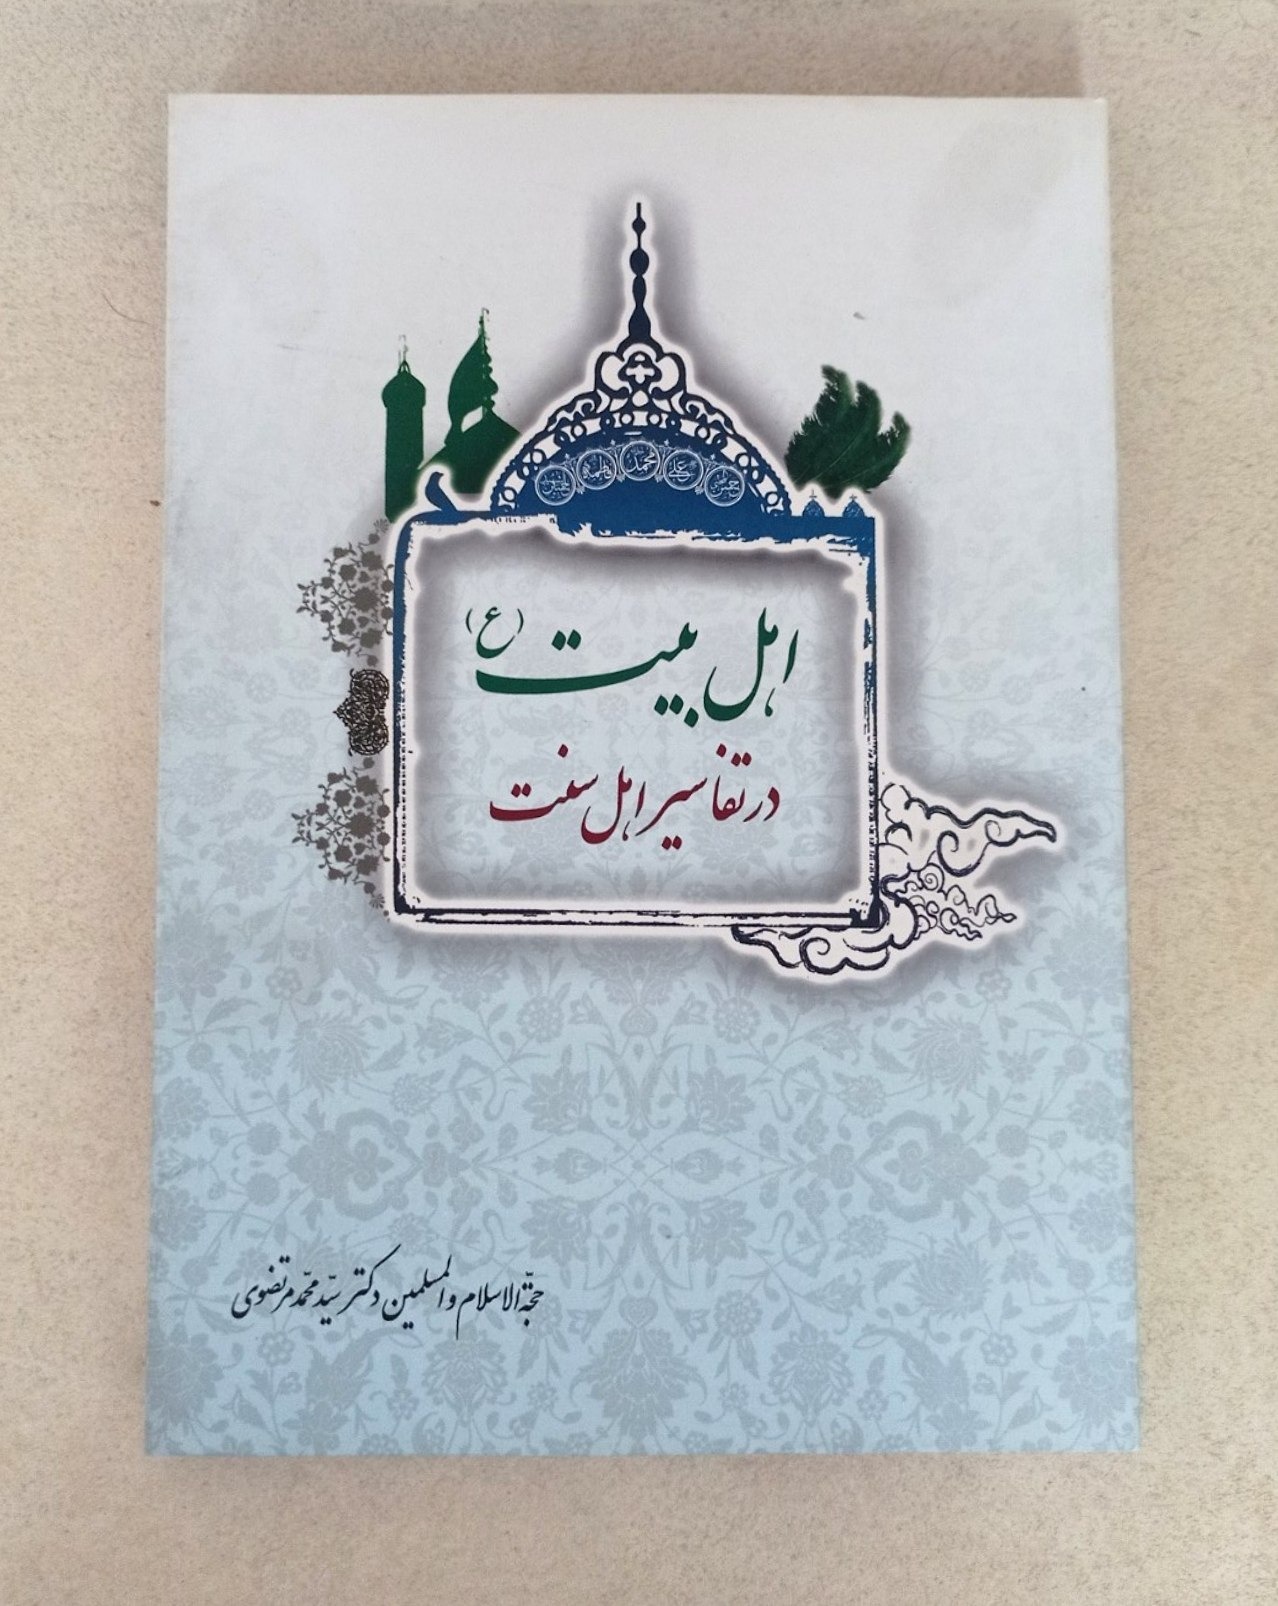 حسین فاطمه محمد علی حسن
اهل بیت (ع)
در تفاسیر اهل سنت
حجّة الاسلام والمسلمین دکتر سیّد محمّد مرتضوی